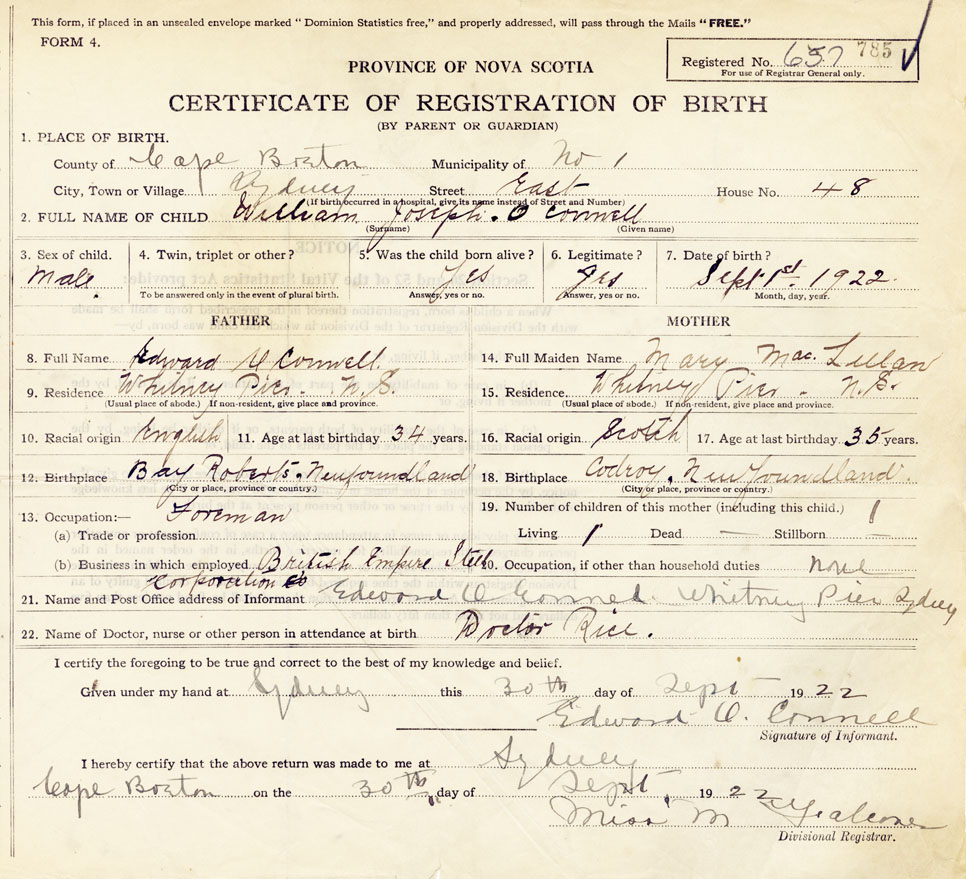 This form, if placed in an unsealed envelope marked “ Dominion Statistics free,” and properly addressed, will pass through the Mails “FREE.”
FORM 4.
Registered No. 657 785
For use of Registrar General only.
PROVINCE OF NOVA SCOTIA
CERTIFICATE OF REGISTRATION OF BIRTH
(BY PARENT OR GUARDIAN)
1. PLACE OF BIRTH.
County of Cape Breton Municipality of No 1
City, Town or Village Sydney Street East House No. 48
(If birth occurred in a hospital, give its name instead of Street and Number)
2. FULL NAME OF CHILD William Joseph. O Connell
(Surname) (Given name)
3. Sex of child. 4. Twin, triplet or other? 5. Was the child born alive? 6. Legitimate? 7. Date of birth?
Male. Yes Yes Sept 1st. 1922.
To be answered only in the event of plural birth. Answer, yes or no. Answer, yes or no. Month, day, year.
FATHER MOTHER
8. Full Name Edward O Connell 14. Full Maiden Name Mary Mac. Lellan
9. Residence Whitney Pier. N.S. 15. Residence Whitney Pier. N.S.
(Usual place of abode.) If non-resident, give place and province. (Usual place of abode.) If non-resident, give place and province.
10. Racial origin English 11. Age at last birthday 34 years. 16. Racial origin Scotch 17. Age at last birthday 35 years.
12. Birthplace Bay Roberts. Newfoundland 18. Birthplace Codroy. Newfoundland.
(City or place, province or country.) (City or place, province or country.)
13. Occupation:— Foreman 19. Number of children of this mother (including this child.) 1
(a) Trade or profession Living 1 Dead — Stillborn —
(b) Business in which employed British Empire Steel 20. Occupation, if other than household duties None
Corporation
21. Name and Post Office address of Informant Edward O Connel. Whitney Pier Sydney
22. Name of Doctor, nurse or other person in attendance at birth Doctor Rice.
I certify the foregoing to be true and correct to the best of my knowledge and belief.
Given under my hand at Sydney this 30th day of Sept 1922
Edward O. Connell
Signature of Informant.
I hereby certify that the above return was made to me at Sydney
Cape Breton on the 30th day of Sept. 1922
Miss M Falconer
Divisional Registrar.